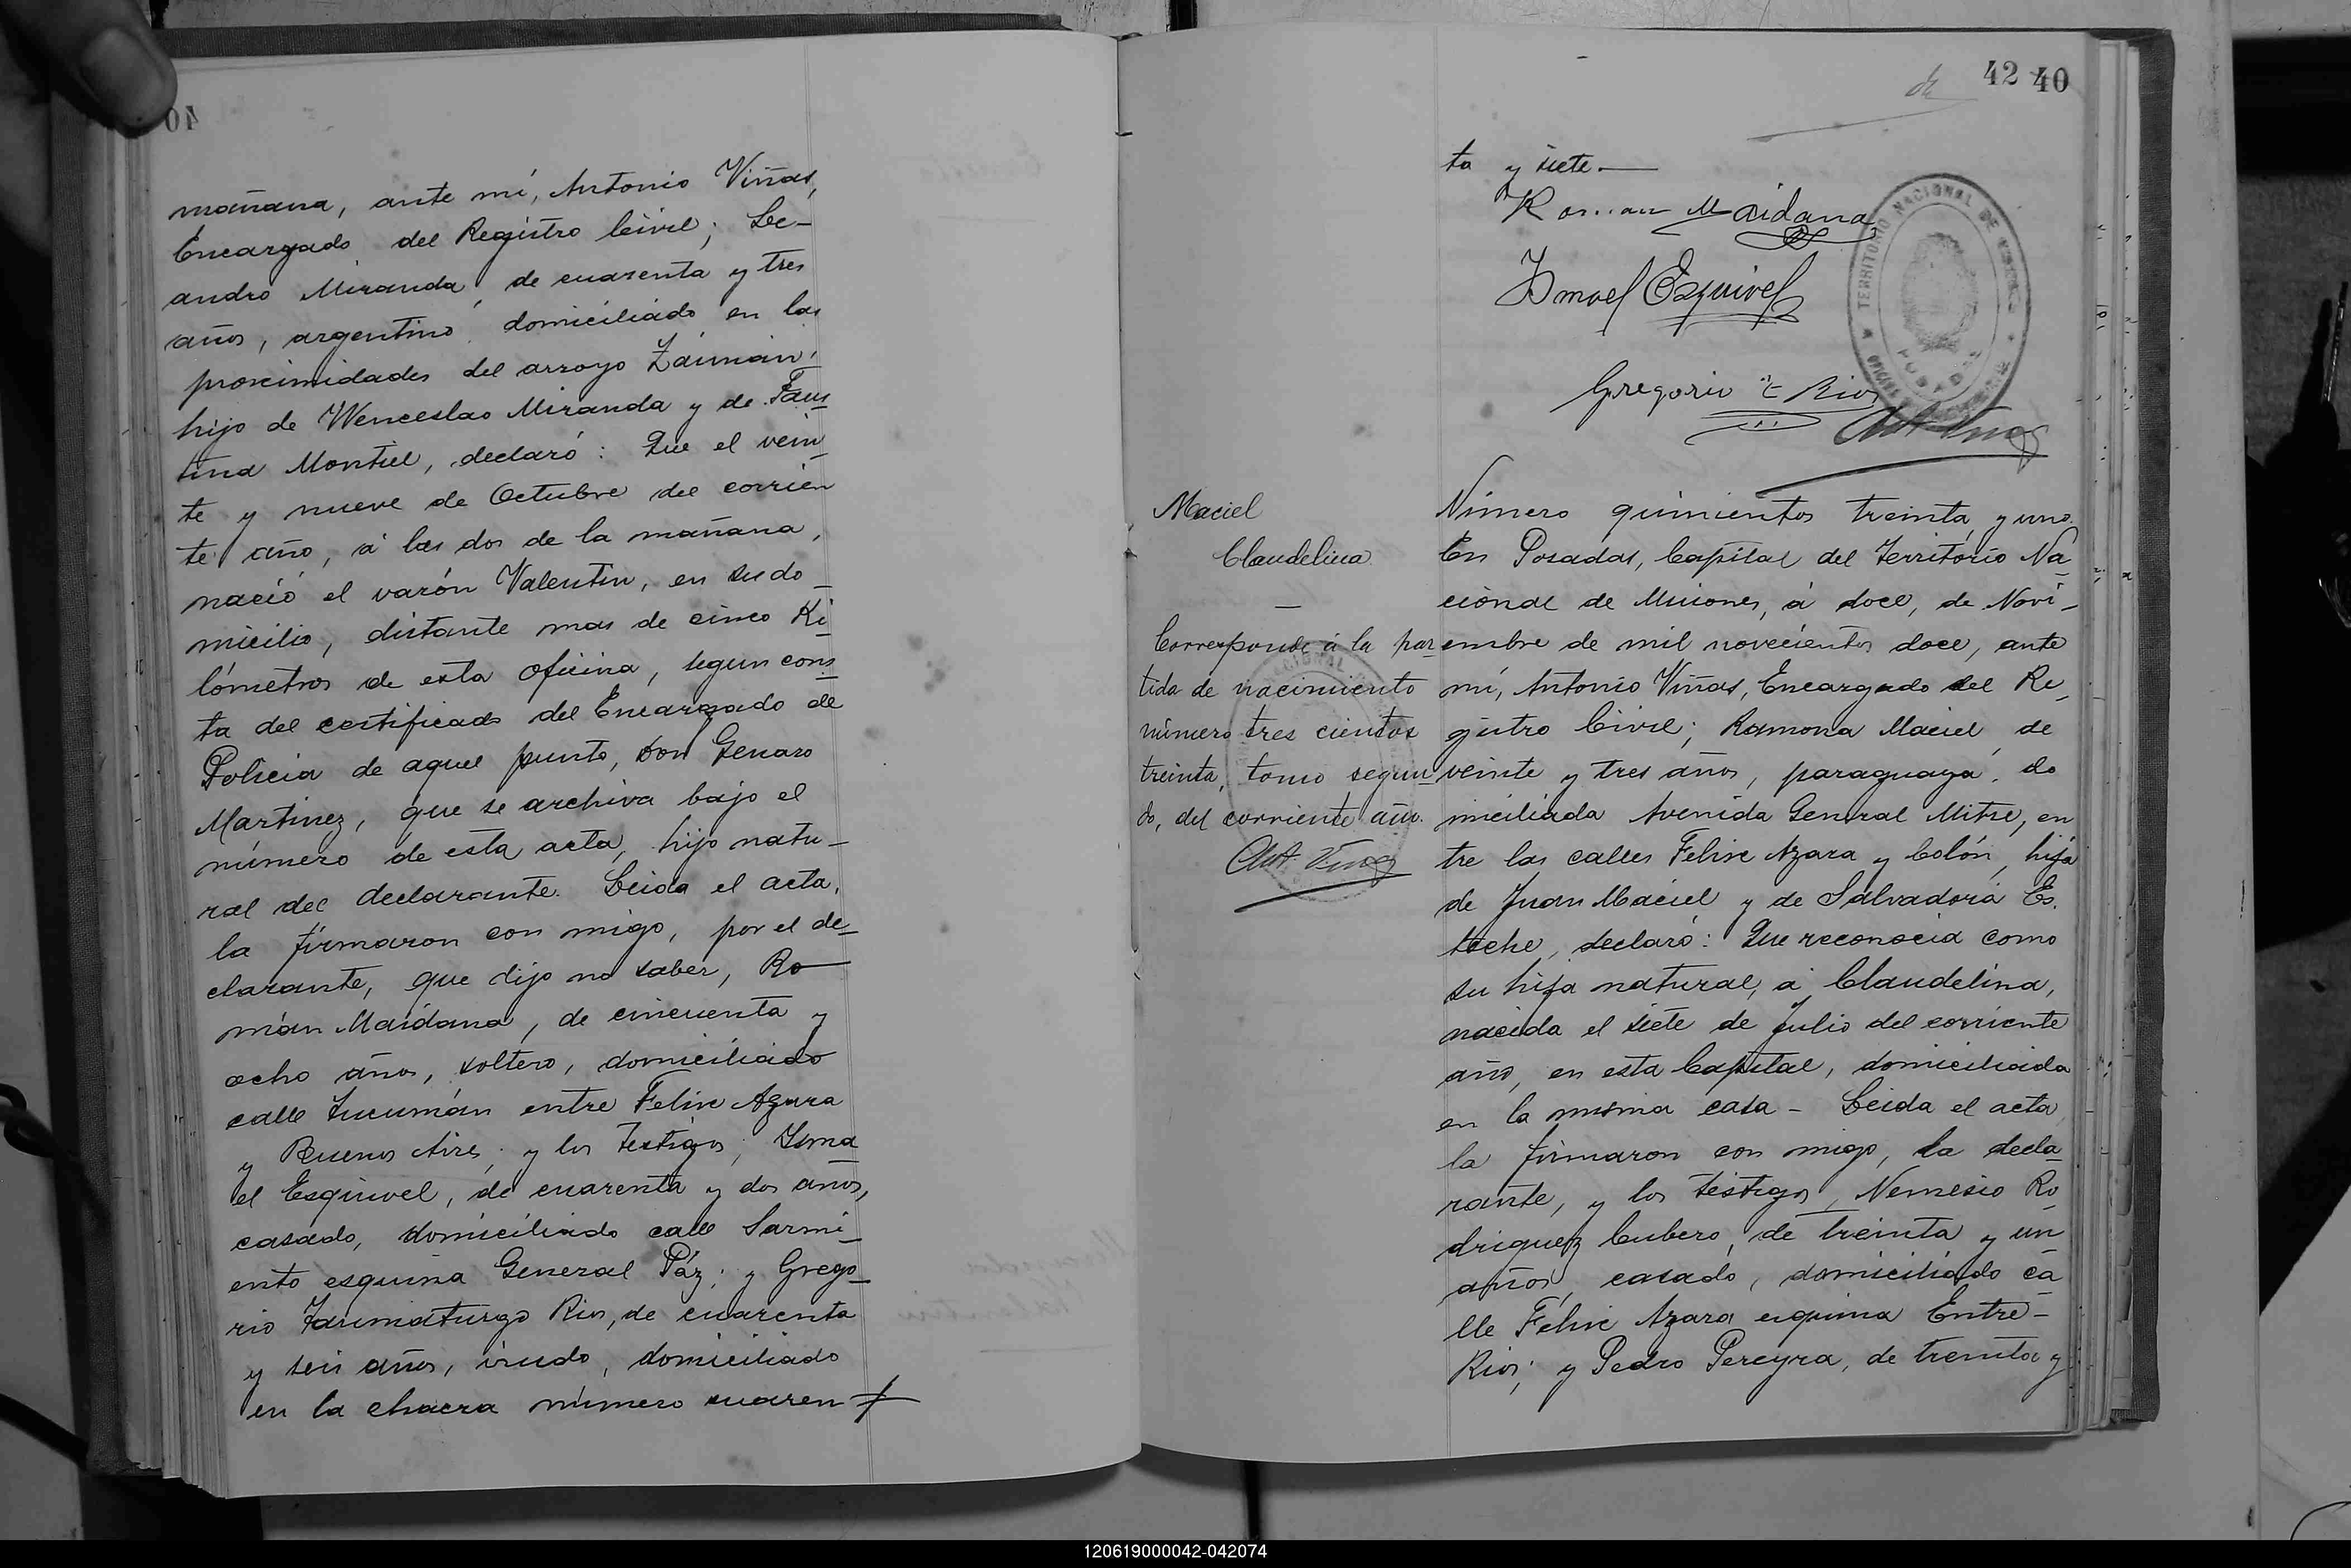 mañana, ante mí, Antonio Viñas,
Encargado del Registro Civil; Le-
andro Miranda, de cuarenta y tres
años, argentino, domiciliado en las
proximidades del arroyo Záimán,
hijo de Wenceslao Miranda y de Faus
tina Montiel, declaró: Que el vein
te y nueve de Octubre del corrien
te año, á las dos de la mañana,
nació el varón Valentin, en su do-
micilio, distante mas de cinco Ki
lómetros de esta oficina, segun cons
ta del certificado del Encargado de
Policia de aquel punto, Don Genaro
Martinez, que se archiva bajo el
número de esta acta, hijo natu-
ral del declarante. Leida el acta,
la firmaron con migo, por el de-
clarante, que dijo no saber, Ro-
mán Maidana, de cincuenta y
ocho años, soltero, domiciliado
calle Tucumán entre Felix Azara
y Buenos Aires; y los testigos, Isma
el Esquivel, de cuarenta y dos años,
casado, domiciliado calle Sarmi-
ento esquina General Páz; y Grego-
rio Taumaturgo Rios, de cuarenta
y seis años, viudo, domiciliado
en la chacra número cuaren
40
42 40
ta y siete.—
Roman Maidana
Ismael Esquivel
Gregorio T Rios
Ant. Viñas
TERRITORIO NACIONAL DE MISIONES
POSADAS
Maciel
Claudelina.
—
Corresponde á la par
tida de nacimiento
número tres cientos
treinta, tomo segun
do, del corriente año.
Ant. Viñas
Número quinientos treinta y uno.
En Posadas, Capital del Territorio Na
cional de Misiones, á doce, de Novi-
embre de mil novecientos doce, ante
mí, Antonio Viñas, Encargado del Re
gistro Civil; Ramona Maciel, de
veinte y tres años, paraguaya, do
miciliada Avenida General Mitre, en
tre las calles Felix Azara y Colón, hija
de Juan Maciel y de Salvadora Es.
teche, declaró: Que reconocia como
su hija natural, á Claudelina,
nacida el siete de Julio del corriente
año, en esta Capital, domiciliada
en la misma casa - Leida el acta,
la firmaron con migo, la decla
rante, y los testigos, Nemesio Ro
driguez Cubero, de treinta y un
años, casado, domiciliado ca
lle Felix Azara esquina Entre-
Rios; y Pedro Pereyra, de treinta y
120619000042-042074